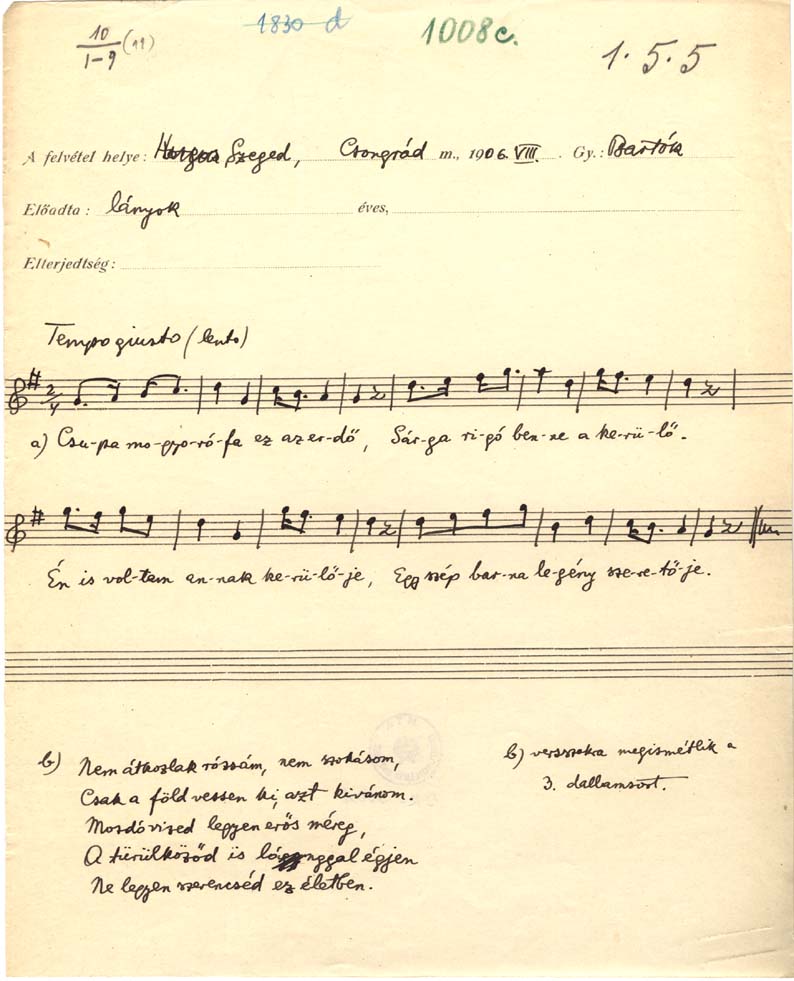 10
1-9 (11)
1830 d
1008c.
1. 5. 5
A felvétel helye: Horgos Szeged, Csongrád m., 1906. VIII. Gy.: Bartók
Előadta: lányok éves,
Elterjedtség:
Tempo giusto (lento)
2/4
a) Csu-pa mo-gyo-ró-fa ez az er-dő, Sár-ga ri-gó ben-ne a ke-rü-lő.
Én is vol-tam an-nak ke-rü-lő-je, Egy szép bar-na le-gény sze-re-tő-je.
b) Nem átkozlak rózsám, nem szokásom,
Csak a föld vessen ki, azt kivánom.
Mosdóvized legyen erős méreg,
A türülköződ is lánggal égjen
Ne legyen szerencséd ez életben.
b) versszakra megismétlik a
3. dallamsort.